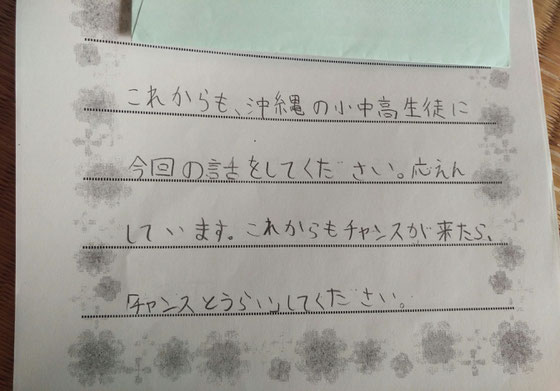 これからも、沖縄の小中高生徒に
今回の話をしてください。応えん
しています。これからもチャンスが来たら、
「チャンスとうらい」してください。